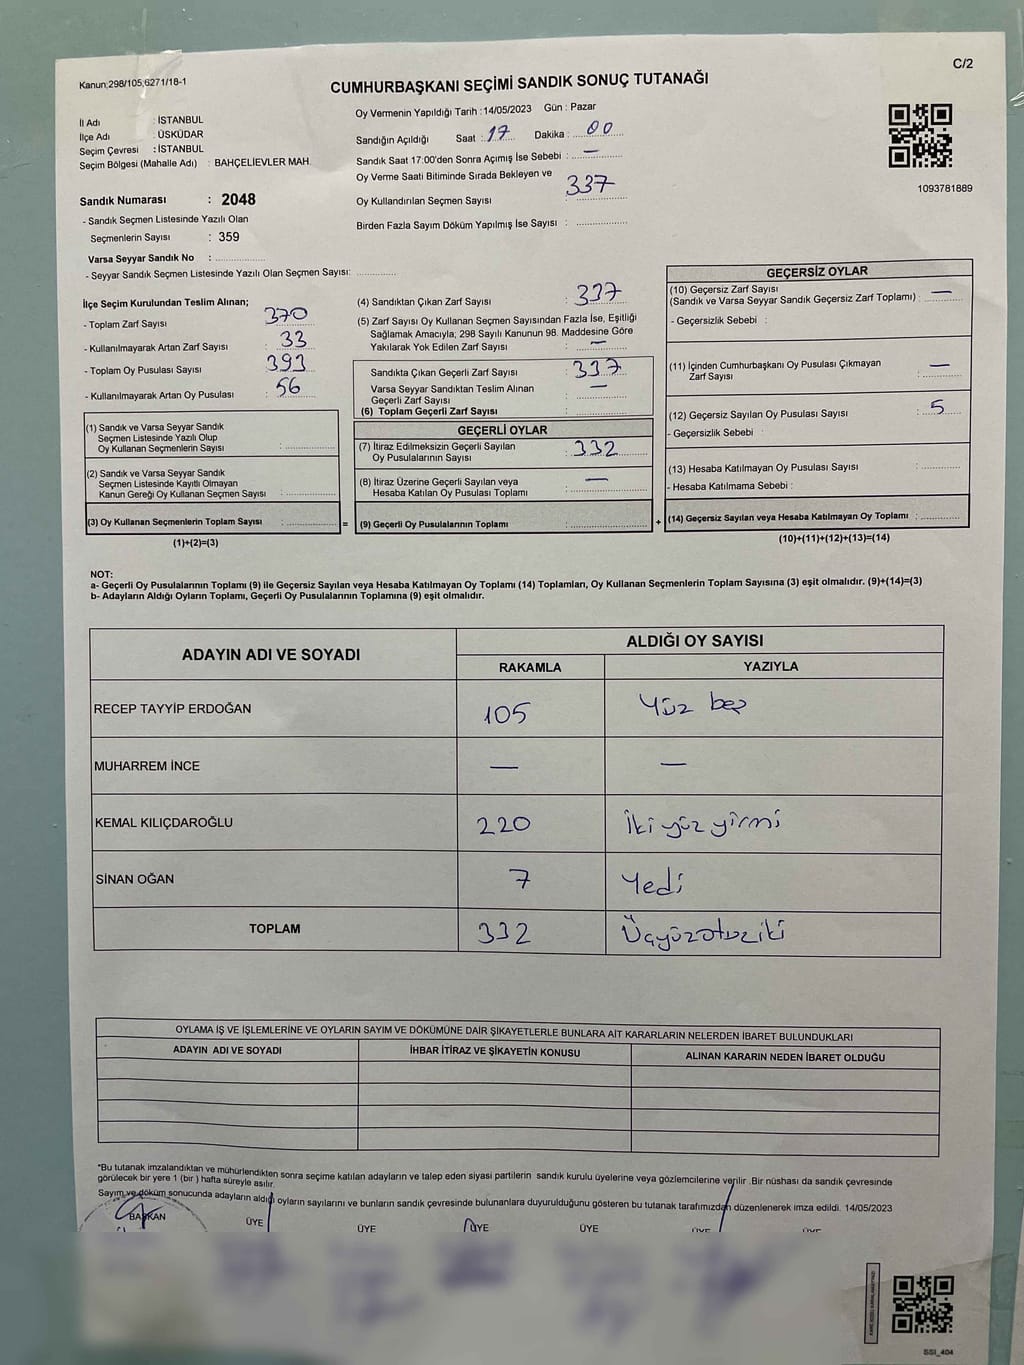 Kanun;298/105,6271/18-1
C/2
CUMHURBAŞKANI SEÇİMİ SANDIK SONUÇ TUTANAĞI
İl Adı : İSTANBUL
İlçe Adı : ÜSKÜDAR
Seçim Çevresi : İSTANBUL
Seçim Bölgesi (Mahalle Adı) : BAHÇELİEVLER MAH.
Sandık Numarası : 2048
- Sandık Seçmen Listesinde Yazılı Olan
Seçmenlerin Sayısı : 359
Varsa Seyyar Sandık No : ................
- Seyyar Sandık Seçmen Listesinde Yazılı Olan Seçmen Sayısı: .............
Oy Vermenin Yapıldığı Tarih : 14/05/2023 Gün : Pazar
Sandığın Açıldığı Saat : 17 Dakika : 00
Sandık Saat 17:00'den Sonra Açımış İse Sebebi : —
Oy Verme Saati Bitiminde Sırada Bekleyen ve
Oy Kullandırılan Seçmen Sayısı : 337
Birden Fazla Sayım Döküm Yapılmış İse Sayısı : ................
1093781889
İlçe Seçim Kurulundan Teslim Alınan;
- Toplam Zarf Sayısı : 370
- Kullanılmayarak Artan Zarf Sayısı : 33
- Toplam Oy Pusulası Sayısı : 393
- Kullanılmayarak Artan Oy Pusulası : 56
(1) Sandık ve Varsa Seyyar Sandık
Seçmen Listesinde Yazılı Olup
Oy Kullanan Seçmenlerin Sayısı : ................
(2) Sandık ve Varsa Seyyar Sandık
Seçmen Listesinde Kayıtlı Olmayan
Kanun Gereği Oy Kullanan Seçmen Sayısı : ................
(3) Oy Kullanan Seçmenlerin Toplam Sayısı : ................ =
(1)+(2)=(3)
(4) Sandıktan Çıkan Zarf Sayısı : 337
(5) Zarf Sayısı Oy Kullanan Seçmen Sayısından Fazla İse, Eşitliği
Sağlamak Amacıyla; 298 Sayılı Kanunun 98. Maddesine Göre
Yakılarak Yok Edilen Zarf Sayısı : —
Sandıkta Çıkan Geçerli Zarf Sayısı : 337
Varsa Seyyar Sandıktan Teslim Alınan
Geçerli Zarf Sayısı : —
(6) Toplam Geçerli Zarf Sayısı : ................
GEÇERLİ OYLAR
(7) İtiraz Edilmeksizin Geçerli Sayılan
Oy Pusulalarının Sayısı : 332
(8) İtiraz Üzerine Geçerli Sayılan veya
Hesaba Katılan Oy Pusulası Toplamı : —
(9) Geçerli Oy Pusulalarının Toplamı : ................ +
GEÇERSİZ OYLAR
(10) Geçersiz Zarf Sayısı
(Sandık ve Varsa Seyyar Sandık Geçersiz Zarf Toplamı) : —
- Geçersizlik Sebebi :
(11) İçinden Cumhurbaşkanı Oy Pusulası Çıkmayan
Zarf Sayısı : —
(12) Geçersiz Sayılan Oy Pusulası Sayısı : 5
- Geçersizlik Sebebi :
(13) Hesaba Katılmayan Oy Pusulası Sayısı : .............
- Hesaba Katılmama Sebebi :
(14) Geçersiz Sayılan veya Hesaba Katılmayan Oy Toplamı : .............
(10)+(11)+(12)+(13)=(14)
NOT:
a- Geçerli Oy Pusulalarının Toplamı (9) ile Geçersiz Sayılan veya Hesaba Katılmayan Oy Toplamı (14) Toplamları, Oy Kullanan Seçmenlerin Toplam Sayısına (3) eşit olmalıdır. (9)+(14)=(3)
b- Adayların Aldığı Oyların Toplamı, Geçerli Oy Pusulalarının Toplamına (9) eşit olmalıdır.
ADAYIN ADI VE SOYADI
ALDIĞI OY SAYISI
RAKAMLA YAZIYLA
RECEP TAYYİP ERDOĞAN 105 Yüz beş
MUHARREM İNCE — —
KEMAL KILIÇDAROĞLU 220 İki yüz yirmi
SİNAN OĞAN 7 Yedi
TOPLAM 332 Üçyüzotuziki
OYLAMA İŞ VE İŞLEMLERİNE VE OYLARIN SAYIM VE DÖKÜMÜNE DAİR ŞİKAYETLERLE BUNLARA AİT KARARLARIN NELERDEN İBARET BULUNDUKLARI
ADAYIN ADI VE SOYADI İHBAR İTİRAZ VE ŞİKAYETİN KONUSU ALINAN KARARIN NEDEN İBARET OLDUĞU
*Bu tutanak imzalandıktan ve mühürlendikten sonra seçime katılan adayların ve talep eden siyasi partilerin sandık kurulu üyelerine veya gözlemcilerine verilir .Bir nüshası da sandık çevresinde
görülecek bir yere 1 (bir ) hafta süreyle asılır.
Sayım ve döküm sonucunda adayların aldığı oyların sayılarını ve bunların sandık çevresinde bulunanlara duyurulduğunu gösteren bu tutanak tarafımızdan düzenlenerek imza edildi. 14/05/2023
BAŞKAN ÜYE ÜYE ÜYE ÜYE ÜYE ÜYE
SSI_404